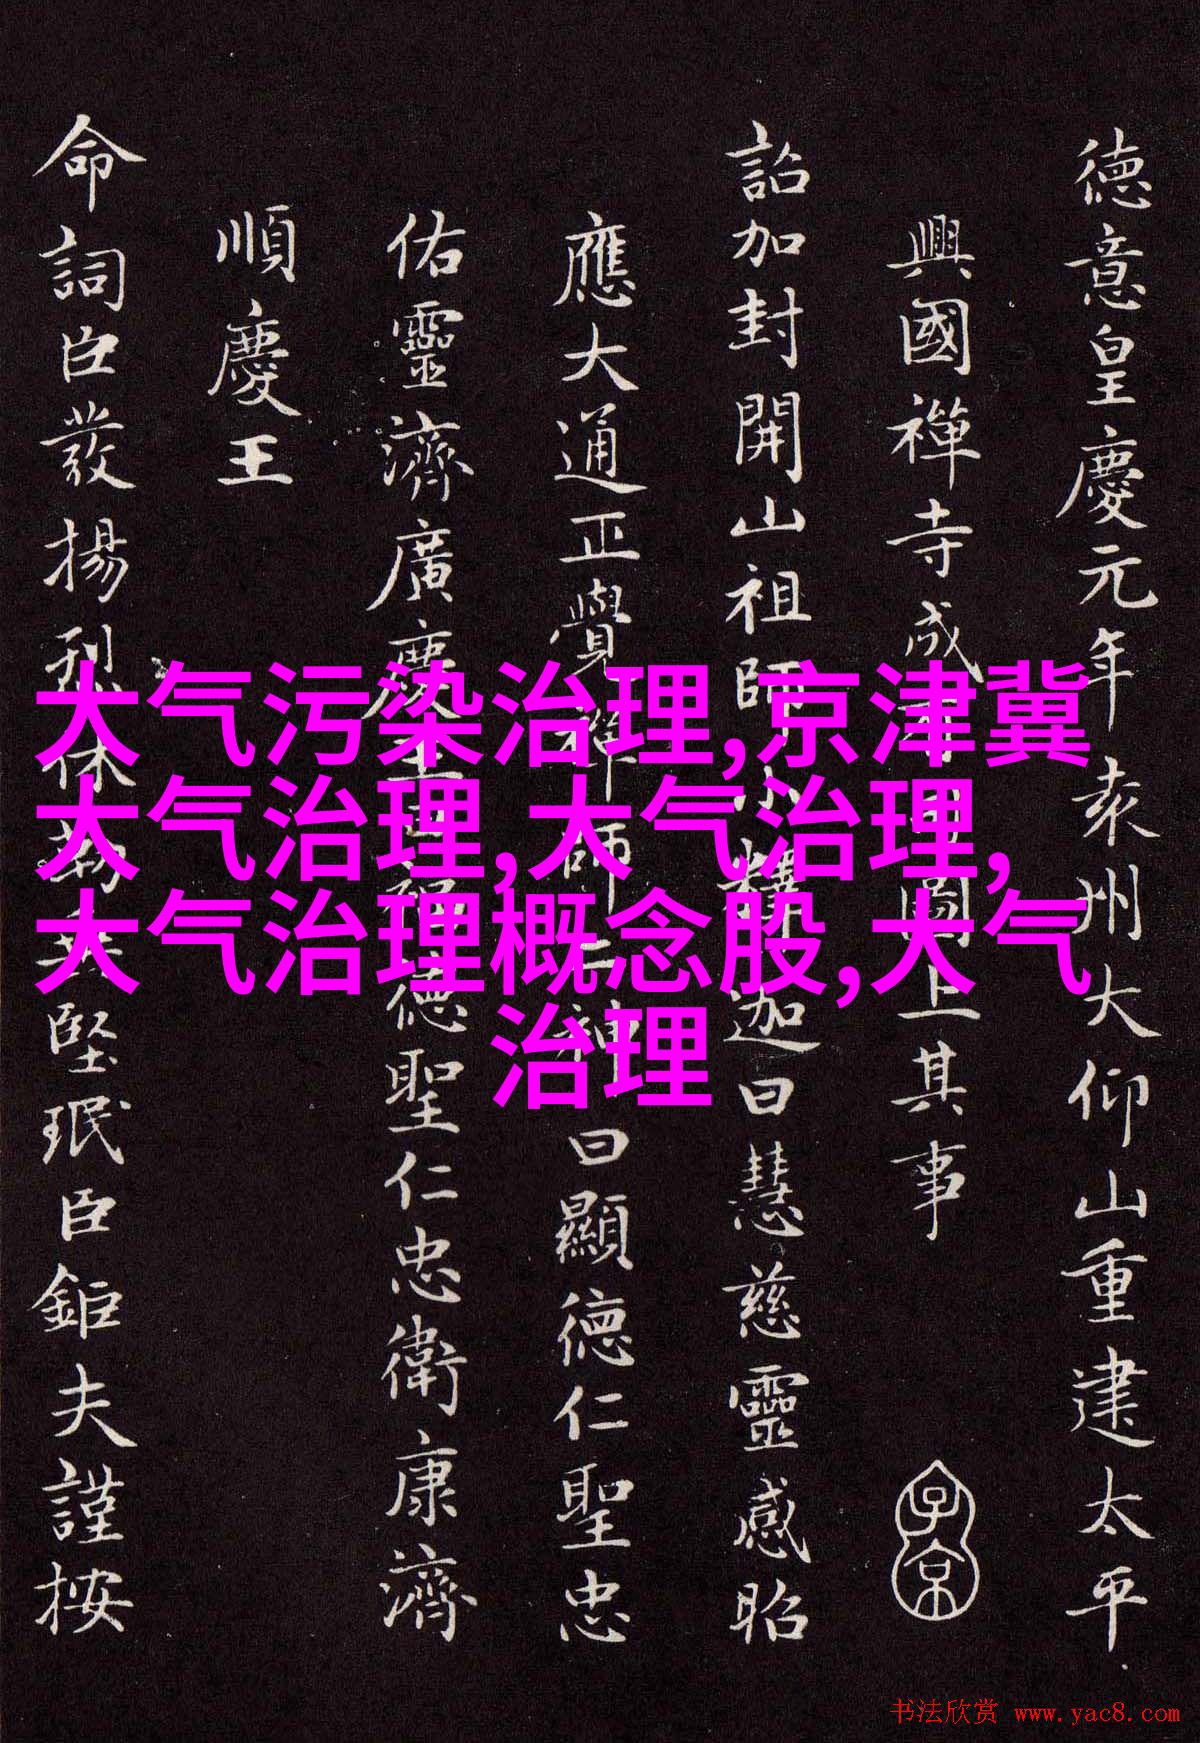 德意皇慶元年袁州大仰山重建太平
興國禪寺成圖上其事
子京
詔加封開山祖師小釋迦曰慧慈靈感昭
應大通正覺禪師二神曰顯德仁聖忠
佑靈濟廣慶福德聖仁忠衛康濟
順慶王
命詞臣發揚刑休堅珉臣鉅夫謹按
大气污染治理,京津冀
大气治理,大气治理,
大气治理概念股,大气
治理
书法欣赏 www.yac8.com